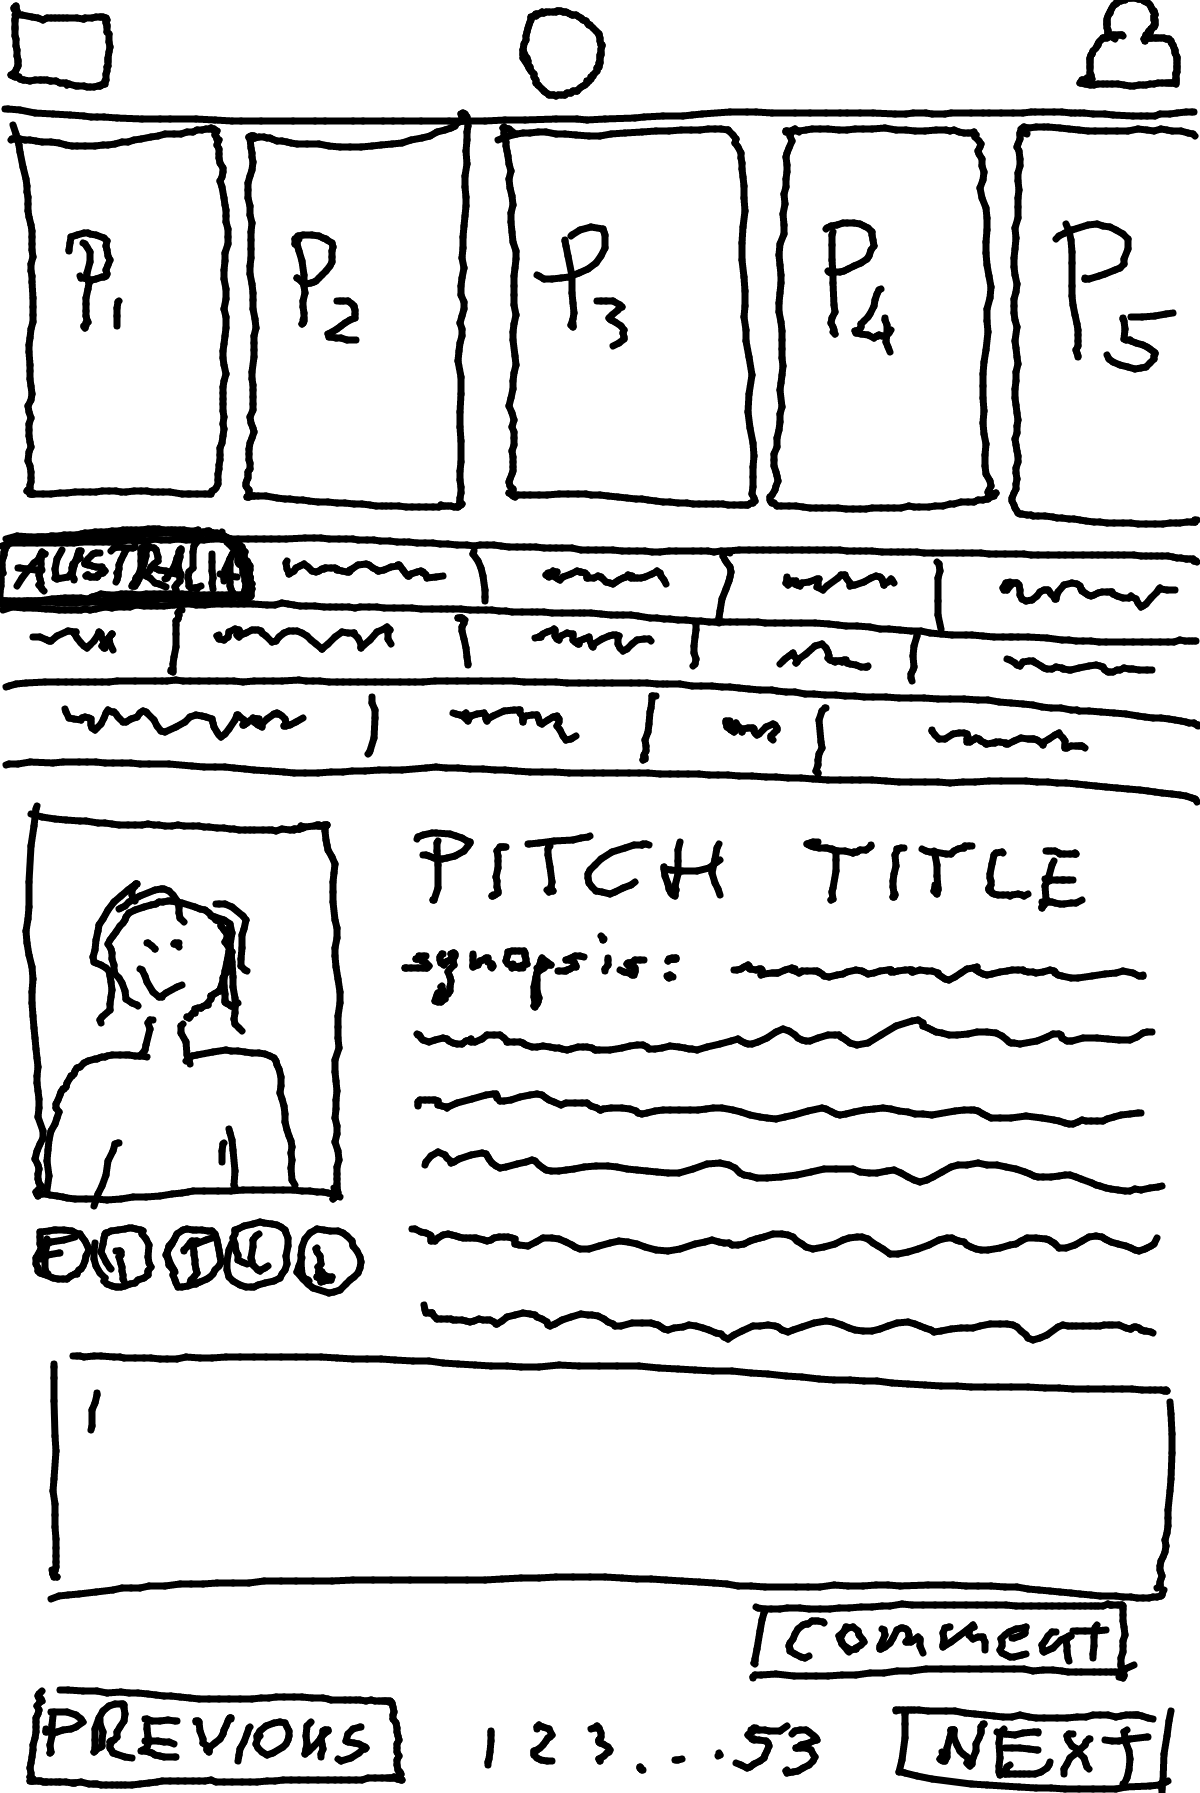 P1 P2 P3 P4 P5
AUSTRALIA
PITCH TITLE
synopsis:
comment
PREVIOUS 1 2 3 . - . 53 NEXT